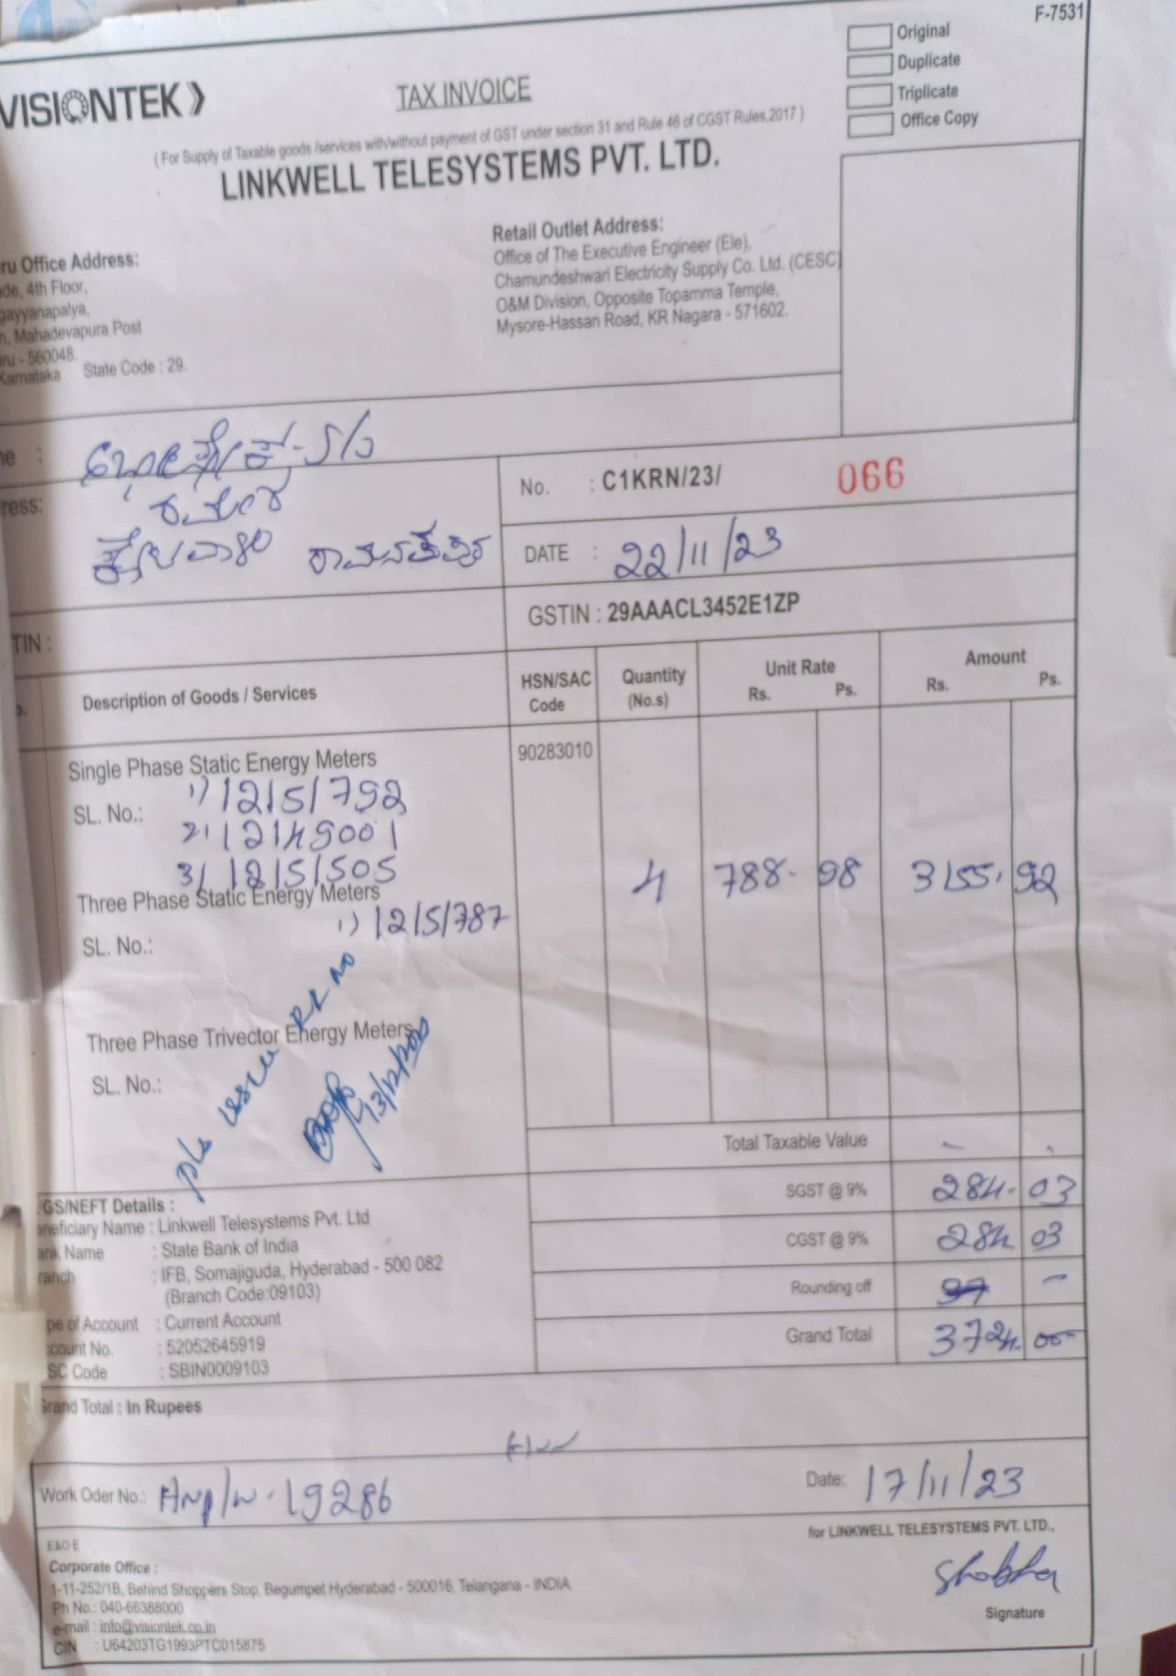 F-7531
Original
Duplicate
Triplicate
Office Copy
VISIONTEK
TAX INVOICE
( For Supply of Taxable goods /services with/without payment of GST under section 31 and Rule 46 of CGST Rules,2017 )
LINKWELL TELESYSTEMS PVT. LTD.
ru Office Address:
de, 4th Floor,
gayyanapalya,
n, Mahadevapura Post
ru - 560048.
Karnataka State Code : 29.
Retail Outlet Address:
Office of The Executive Engineer (Ele),
Chamundeshwari Electricity Supply Co. Ltd. (CESC)
O&M Division, Opposite Topamma Temple,
Mysore-Hassan Road, KR Nagara - 571602.
me : S/o
ress:
No. : C1KRN/23/ 066
DATE : 22/11/23
TIN :
GSTIN : 29AAACL3452E1ZP
Description of Goods / Services
HSN/SAC Code
Quantity (No.s)
Unit Rate Rs. Ps.
Amount Rs. Ps.
Single Phase Static Energy Meters
90283010
SL. No.: 1) 12151792
2) 12149001
3) 12151505
4 788.98 3155.92
Three Phase Static Energy Meters
1) 12151787
SL. No.:
Three Phase Trivector Energy Meters
SL. No.:
pls issue RR no
Total Taxable Value - -
SGST @ 9% 284.03
CGST @ 9% 284 03
Rounding off 97 -
Grand Total 3724.00
GS/NEFT Details :
eneficiary Name : Linkwell Telesystems Pvt. Ltd
ank Name : State Bank of India
ranch : IFB, Somajiguda, Hyderabad - 500 082
(Branch Code:09103)
pe of Account : Current Account
ccount No. : 52052645919
SC Code : SBIN0009103
Grand Total : In Rupees
Work Oder No.: 19286
Date: 17/11/23
for LINKWELL TELESYSTEMS PVT. LTD.,
Shobha
Signature
E&O E
Corporate Office :
1-11-252/1B, Behind Shoppers Stop, Begumpet Hyderabad - 500016, Telangana - INDIA
Ph No.: 040-66388000
e-mail : info@visiontek.co.in
CIN : U64203TG1993PTC015875